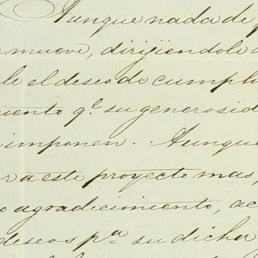 Aunque nada de p
mueve, dirijiendole a
le el deseo de cumpli
iento q.e su generosid
imponen. Aunque
r a este proyecto mas,
o agradecimiento, ac
deseos p.a su dicha